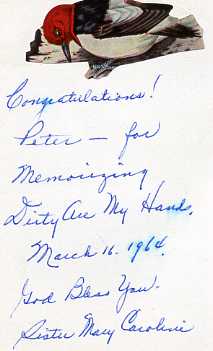 Congratulations!
Peter — for
Memorizing
Dirty Are My Hand,
March 16. 1964.
God Bless You.
Sister Mary Caroline